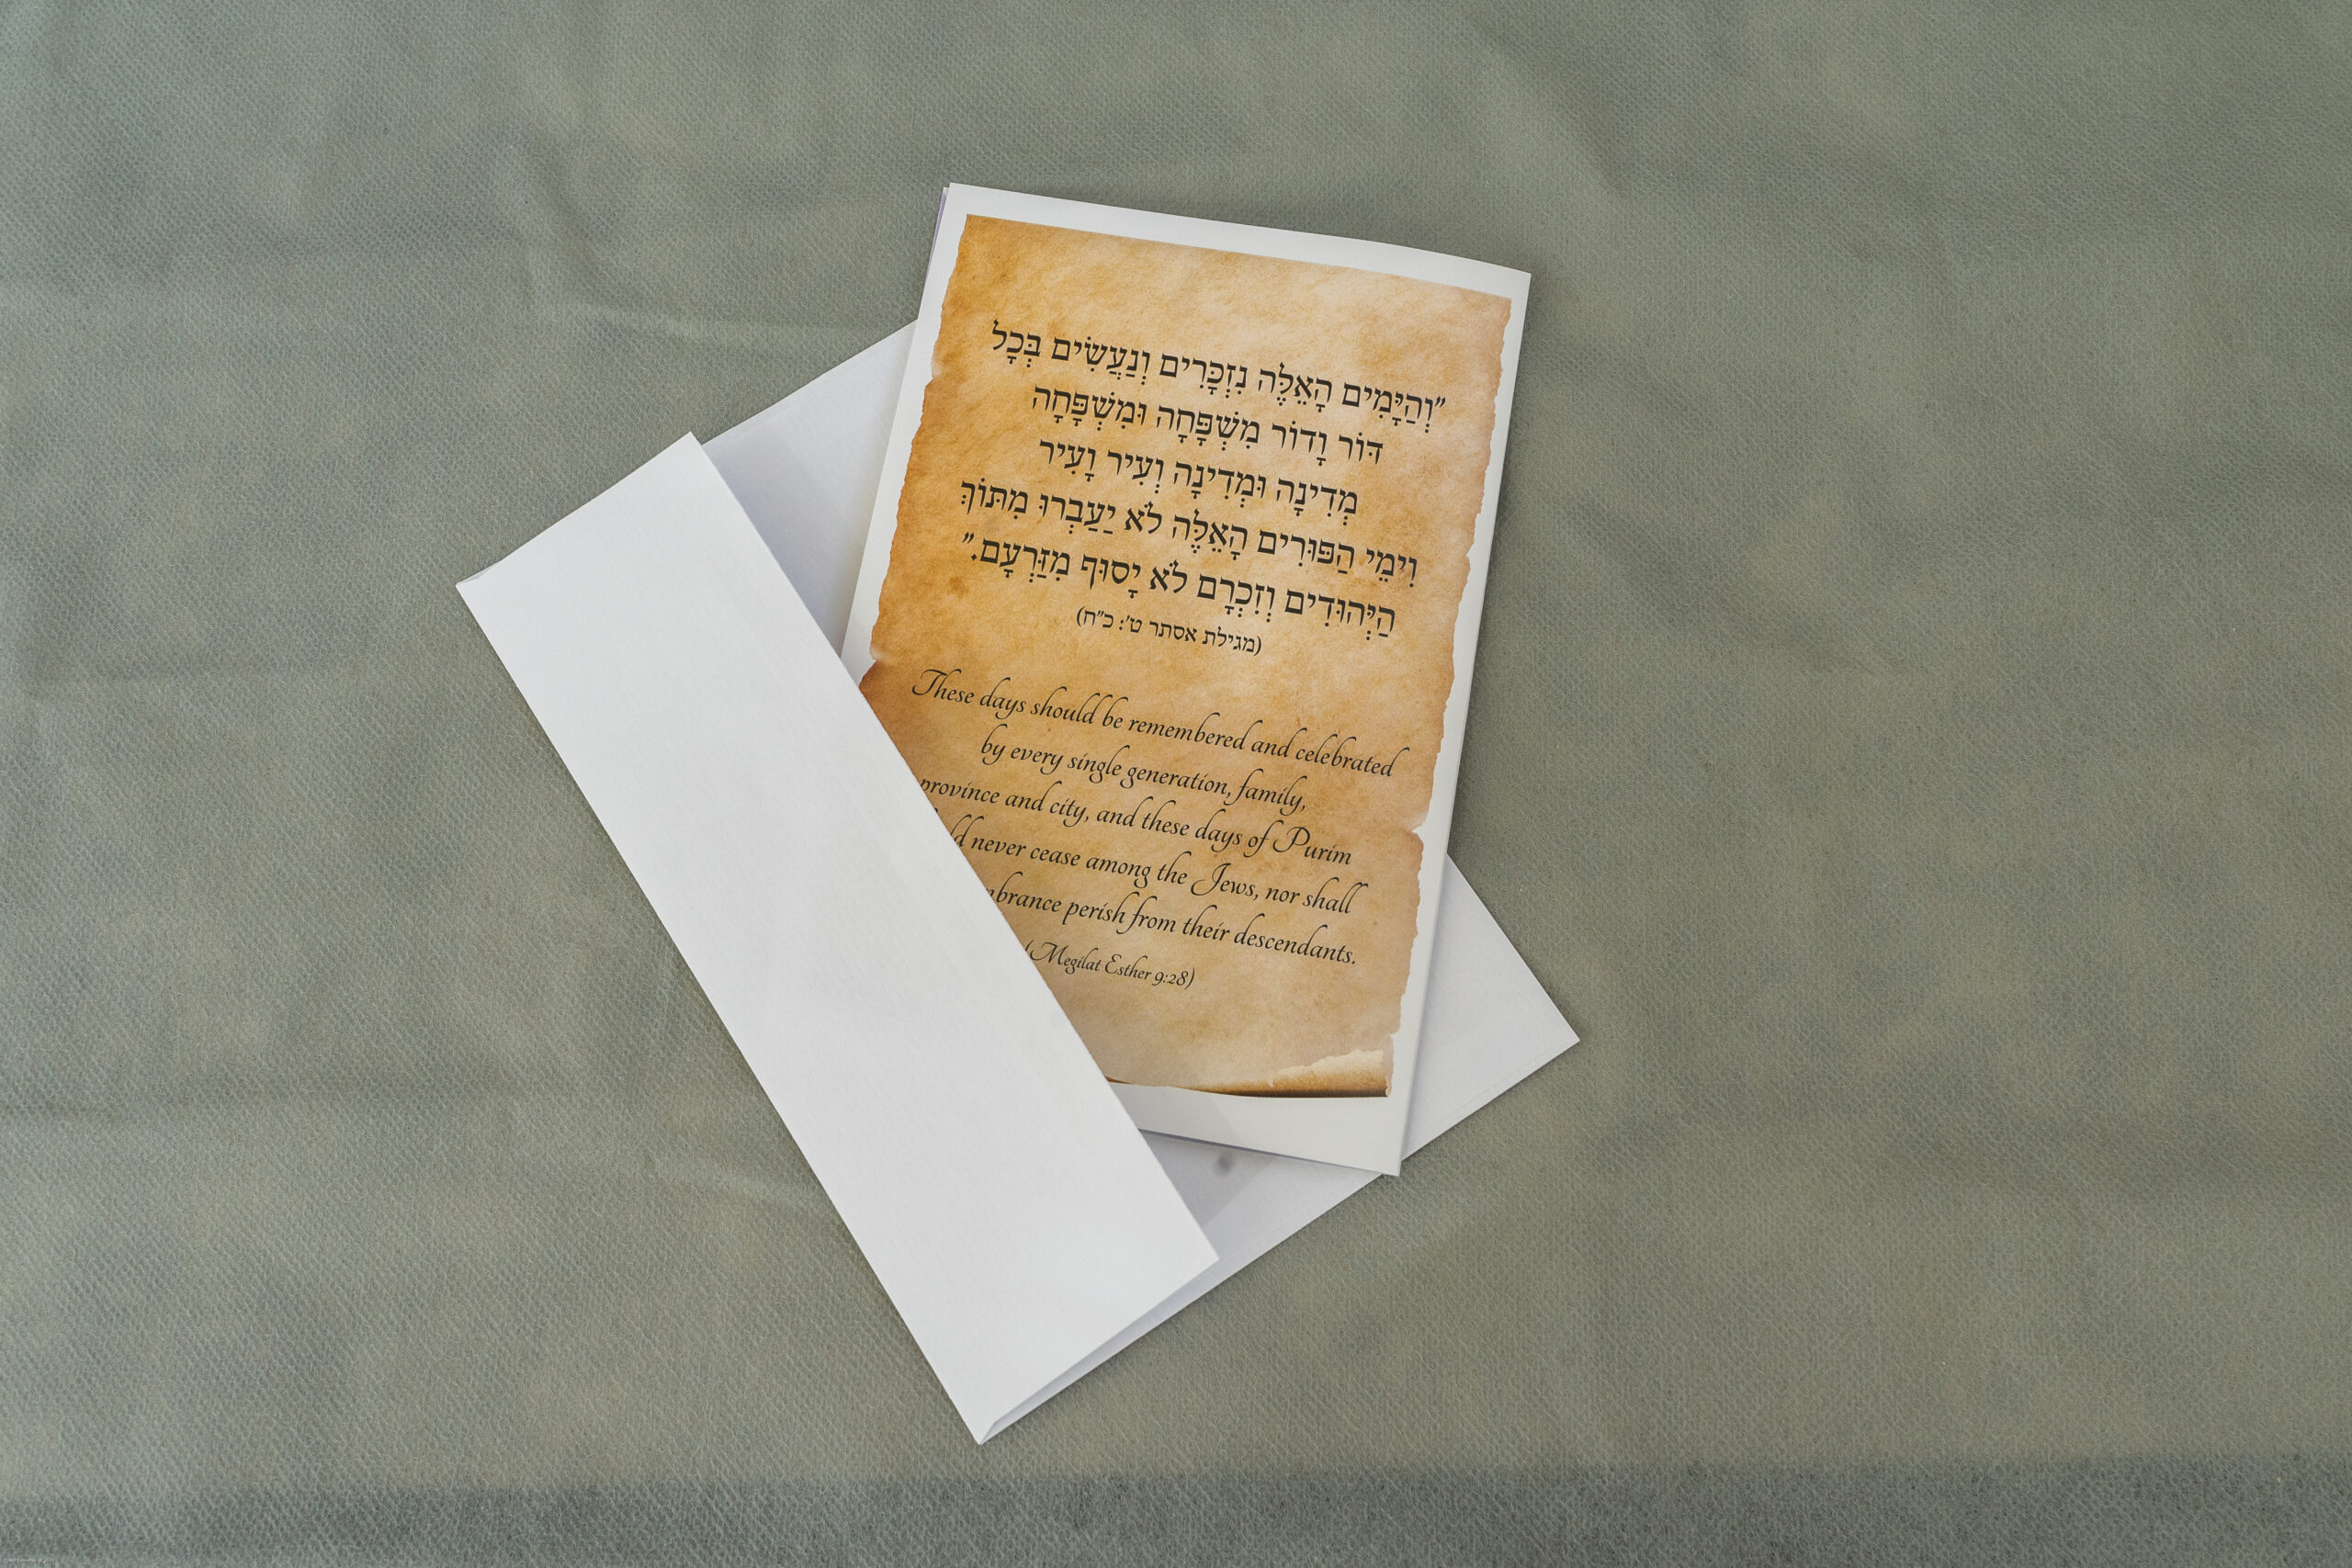 "וְהַיָּמִים הָאֵלֶּה נִזְכָּרִים וְנַעֲשִׂים בְּכָל
דּוֹר וָדוֹר מִשְׁפָּחָה וּמִשְׁפָּחָה
מְדִינָה וּמְדִינָה וְעִיר וָעִיר
וִימֵי הַפּוּרִים הָאֵלֶּה לֹא יַעַבְרוּ מִתּוֹךְ
הַיְּהוּדִים וְזִכְרָם לֹא יָסוּף מִזַּרְעָם."
(מגילת אסתר ט': כ"ח)
These days should be remembered and celebrated
by every single generation, family,
province and city, and these days of Purim
never cease among the Jews, nor shall
perish from their descendants.
(Megilat Esther 9:28)